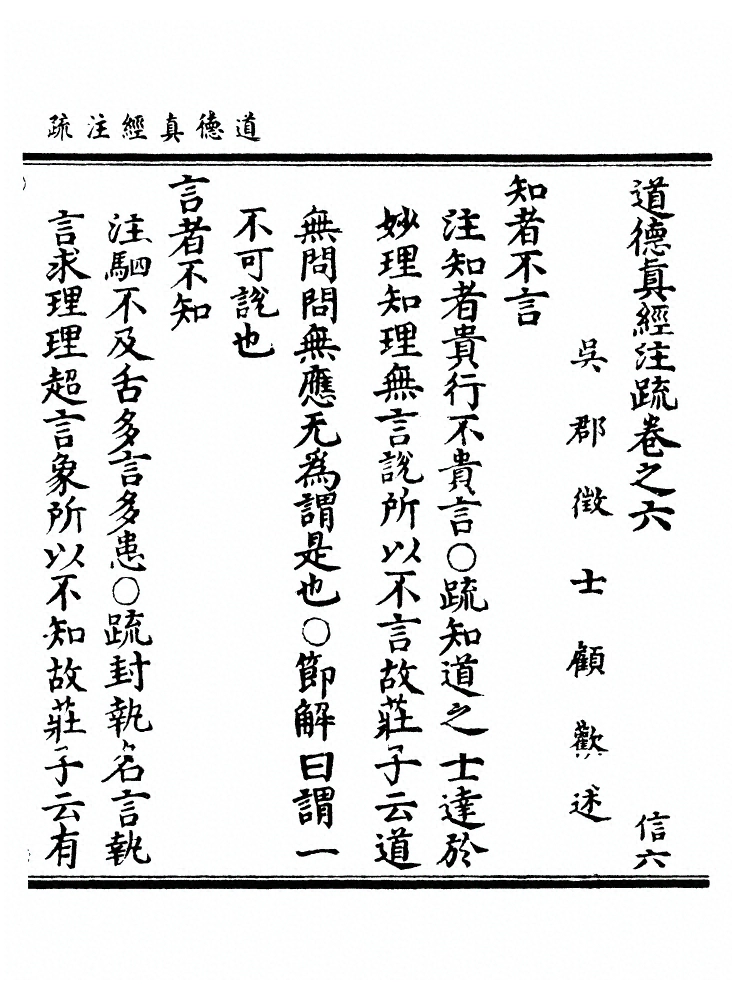 道德真經注疏
道德眞經注䟽卷之六
信六
吳郡徵士顧歡述
知者不言
注知者貴行不貴言○䟽知道之士達於
妙理知理無言說所以不言故莊子云道
無問問無應无為謂是也○節解曰謂一
不可說也
言者不知
注駟不及舌多言多患○䟽封執名言執
言求理理超言象所以不知故莊子云有